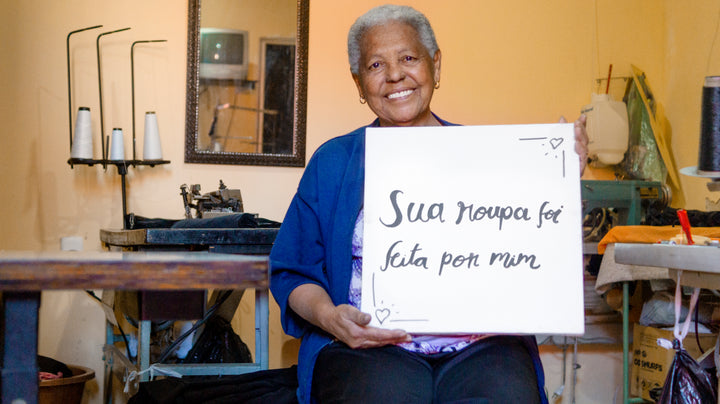 Sua roupa foi
feita por mim